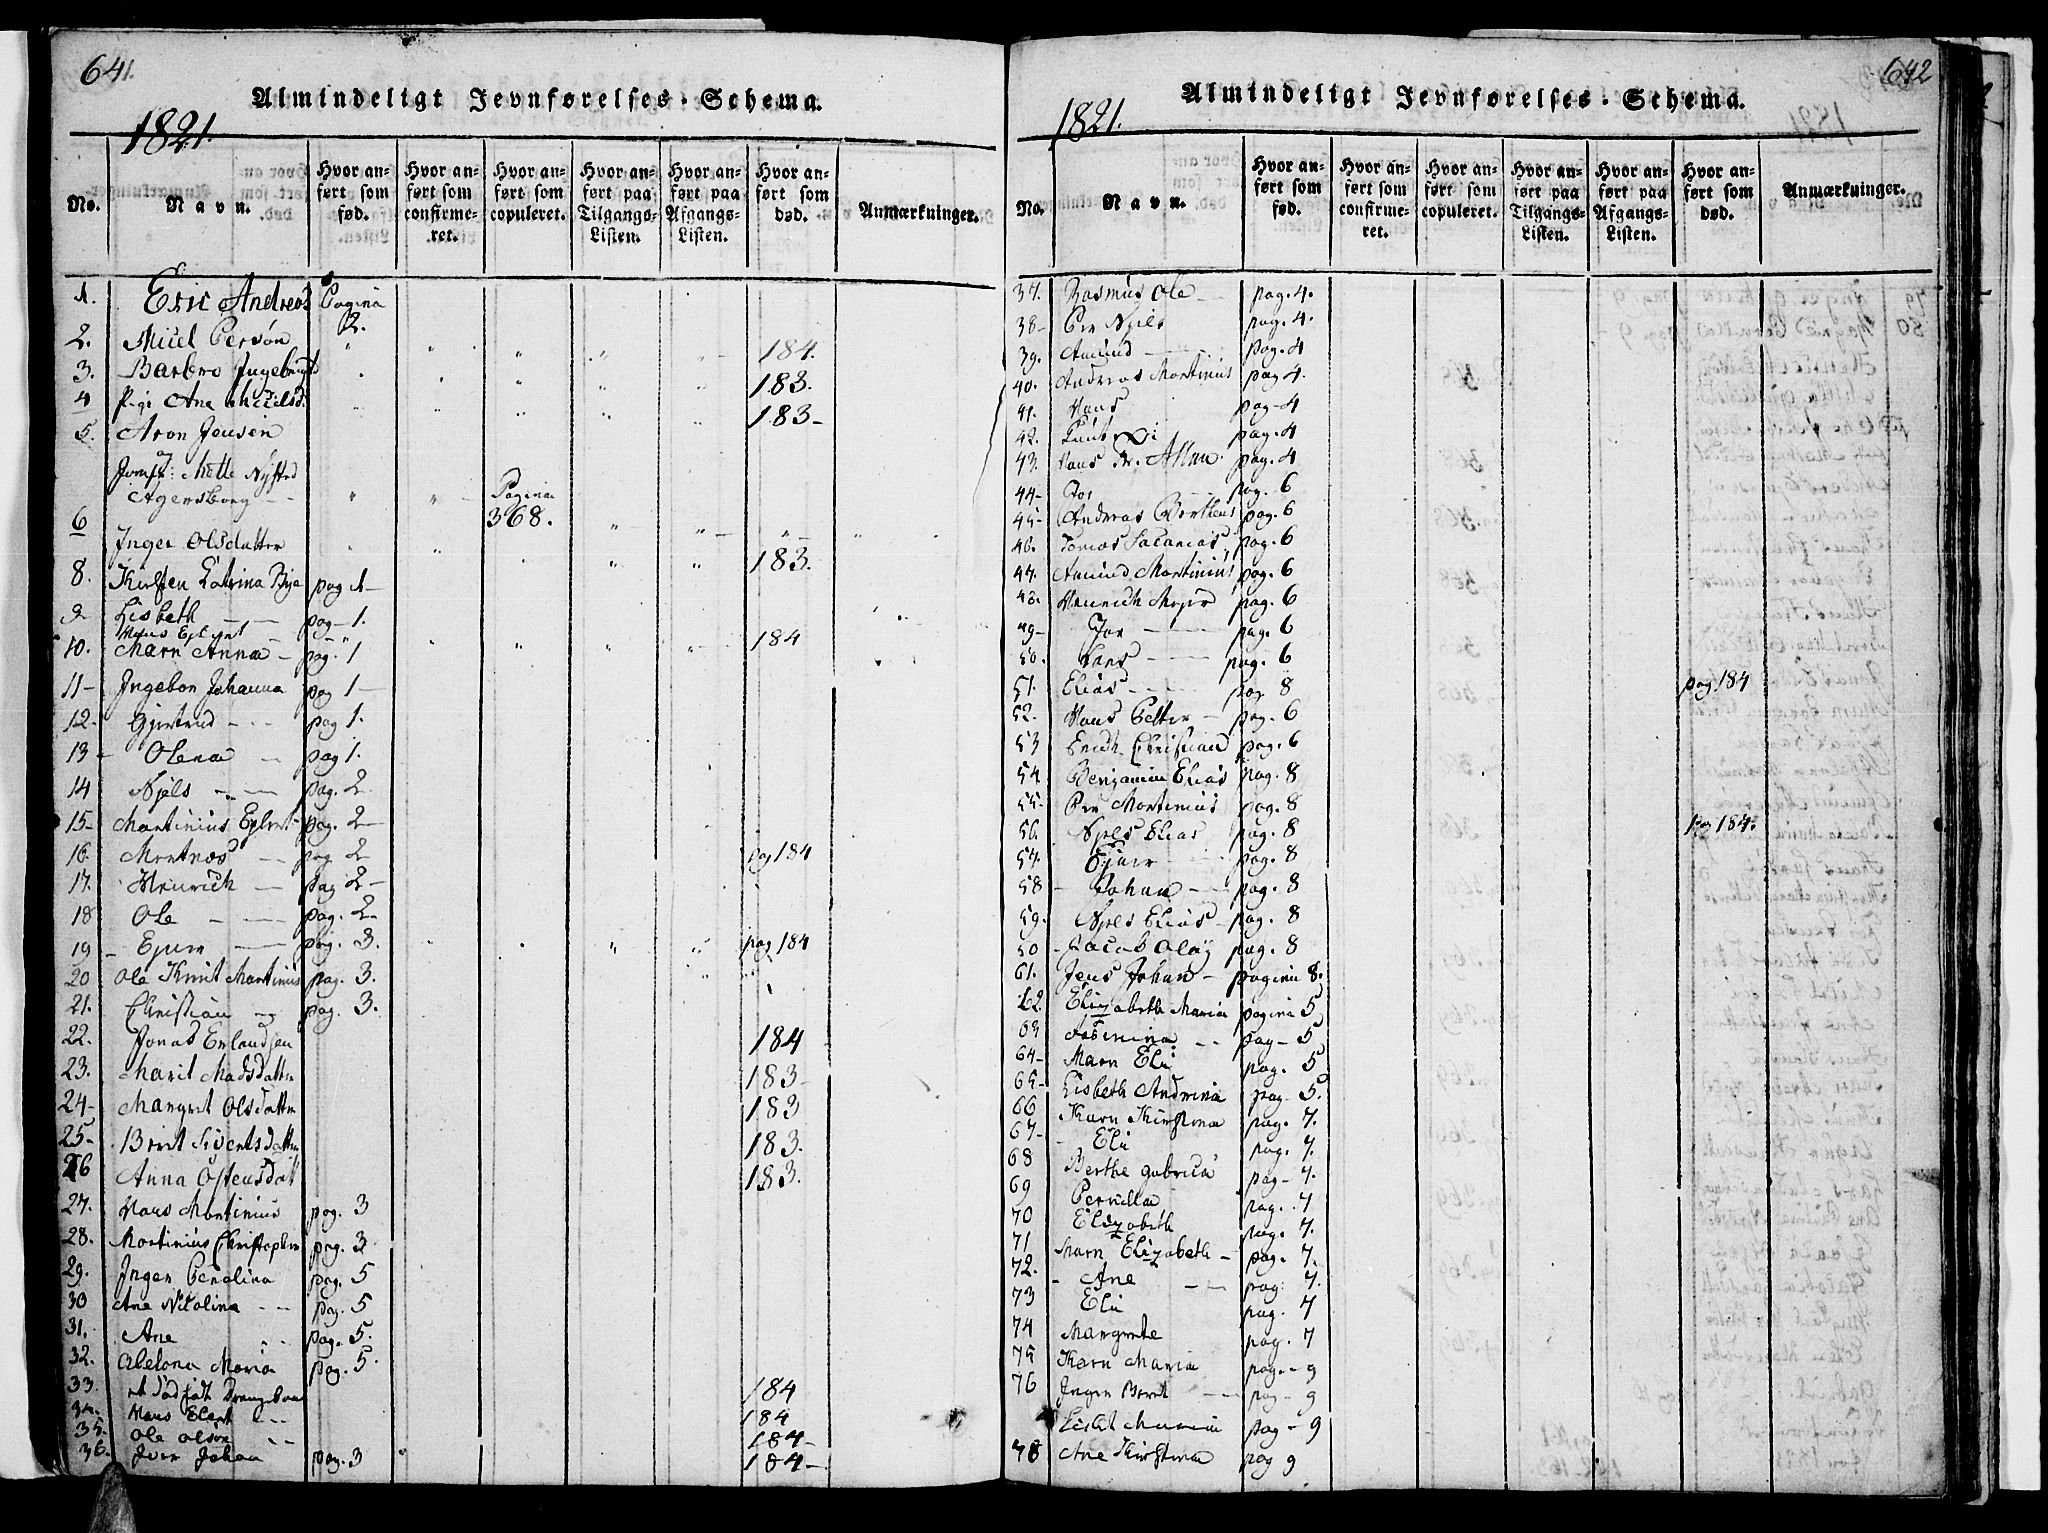 641.
Almindeligt Jevnførelses-Schema.
1821.
No.
Navn.
Hvor anført som fød.
Hvor anført som confirmeret.
Hvor anført som copuleret.
Hvor anført paa Tilgangs-Listen.
Hvor anført paa Afgangs-Listen.
Hvor anført som død.
Anmærkninger.
1. Eric Andreas Pagina 2.
2. Miiel Persøn " " " " " 184.
3. Barbro Ingebrigtsd " " " 183.
4 Pige Ane Miielsd. " " " " " 183-
5. Aron Jensen
Jomfr: Mette Nysted
Agersborg - - " " Pagina
368.
6 Inger Olsdatter 183.
8. Kirsten Catrina pag 1
9 Lisbeth - pag-1.
Hans Ejlert - - " " " " " 184
10. Marn Anna - pag. 1
11- Ingebor Johanna pag 1-
12. Gjertrud - - pag 1.
13- Olena - pag 1.
14 Njels - - pag. 2
15- Martinius Ejlert- pag. 2-
16. - pag 2 pag 184
17. Henrich - pag 2-
18 Ole - - pag. 2-
19- Ejner - pag. 3. pag 184
20 Ole Knut Martinius pag. 3.
21. Christian pag. 3.
22. Jonas Erlandsen 184
23. Marit Madsdatter 183-
24- Margret Olsdatter 183
25- Brit Sivertsdatter 183.
26 Anna Ostensdat 183.
27. Hans Martinius pag. 3
28. Martinius Christopher pag. 3
29. Inger Perolina pag. 5
30 Ane Nicolina - - pag. 5
31. Ane - - pag. 5.
32. Abelona Maria pag. 5
33. et død født Drængebarn 184
34. Hans Elert - - 184
35. Ole Olsen - - 184-
36. Iver Johan pag. 3 184-
642
Almindeligt Jevnførelses-Schema.
1821.
No.
Navn.
Hvor anført som fød.
Hvor anført som confirmeret.
Hvor anført som copuleret.
Hvor anført paa Tilgangs-Listen.
Hvor anført paa Afgangs-Listen.
Hvor anført som død.
Anmærkninger.
37. Rasmus Ole - pag. 4.
38- Per Njels pag. 4.
39. Amund - pag. 4
40. Andreas Martinius pag 4.
41. Hans pag-4
42. Knut pag. 4
43. Hans pag. 4
44- Jor pag. 6
45- Andreas Bertheus pag. 6
46. Tomas Sacarias pag. 6
47. Amund Martinius pag. 6
48. Henrich Mejer pag. 6
49- Jor - pag. 6
50. Lars - - pag. 6
51. Elias - - pag 8 pag 184
52. Hans Petter - pag. 6
53 Erich Christian pag. 6
54 Benjamin Elias pag. 8
55- Per Martinius pag. 8
56. Njels Elias pag. 8 pag 184.
57. Ejner - pag. 8
58- Johan - - pag. 8
59. Njels Elias - pag. 8
50 - Jacob Olaj pag. 8
61. Jens Johan - pagina 8.
62. Elizabeth Maria pagina 5
63 - - pag-5
64- Marn Eli pag. 5
65- Lisbeth Andrina pag. 5.
66 Karn Kirstina pag. 7.
67- Eli pag. 7.
68 Berthe Gabriela pag-7.
69 Pernilla pag. 7
70 Elizabeth pag. 7.
71 Marn Elizabeth - pag. 7.
72. - Ane - - pag. 7.
73 Eli pag. 7
74 Margrete pag. 7
75 Karn Maria pag. - 9
76 Inger Berit - - pag - 9
pag - 9
78 Ane Kirstina pag 9